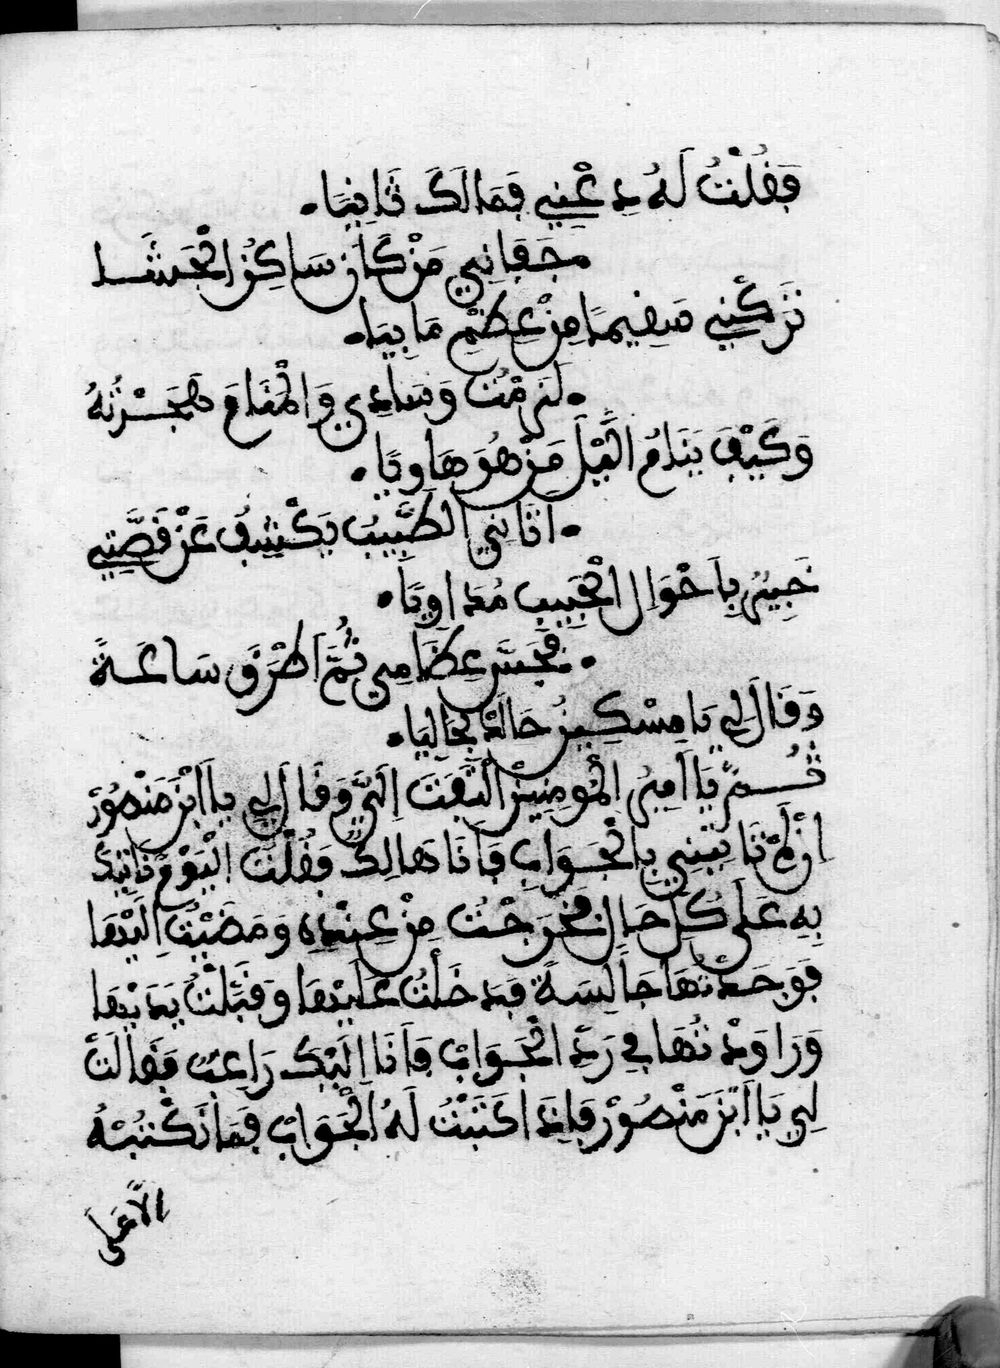 فَقُلْتُ لَهُ دِعْنِي فَمَا لَكَ ثَانِيًا.
جَفَانِي مَنْ كَانَ سَاكِنُ الْحَشَا
تَرَكْنِي سَقِيمًا مِنْ عِظَمِ مَا بِيَا.
لَزِمْتُ وَسَادِي وَالْمَنَامَ هَجَرْتُهُ
وَكَيْفَ يَنَامُ الَّيْلَ مَنْ هُوَ هَاوِيًا.
اتَانِي الطَّبِيبُ يَكْشِفُ عَنْ قِصَّتِي
خَبِيرٌ بِأَحْوَالِ الْحَبِيبِ مُدَاوِيًا.
فَجَسَّ عِظَامِي ثُمَّ اطْرَقَ سَاعَةً
وَقَالَ لِي يَا مِسْكِينُ حَالَكْ بَحَالِيَا.
ثُمَّ يَا أَمِيرَ الْمُومِنِينَ الْتَفَتَ إِلَيَّ وَقَالَ لِي يَا ابْنَ مَنْصُورْ
انْ لَمْ تَاتِينِي بِالْجَوَابِ فَأَنَا هَالِكْ فَقُلْتُ الْيَوْمَ نَاتِيكَ
بِهِ عَلَى كُلِّ حَالٍ فَخَرَجْتُ مِنْ عِنْدِهِ وَمَضَيْتُ إِلَيْهَا
فَوَجَدْتُهَا جَالِسَةً فَدَخَلْتُ عَلَيْهَا وَقَبَّلْتُ يَدَيْهَا
وَرَاوَدْتُهَا فِي رَدِّ الْجَوَابْ وَأَنَا إِلَيْكَ رَاغِبْ فَقَالَتْ
لِي يَا ابْنَ مَنْصُورْ فَإِذَا كَتَبْتُ لَهُ الْجَوَابْ فَمَا نَكْتُبُهُ
الَّا عَلَى